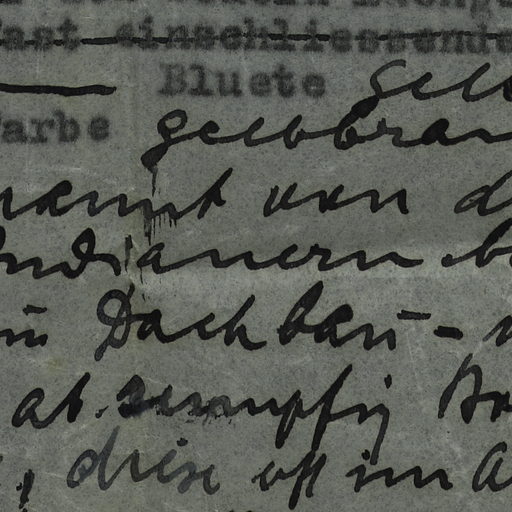 fast einschliessende
Bluete gelb
Farbe gelbbrau
kannt von d
Indianern b
im Dachbau -
ab. sumpfig
, diese oft im A